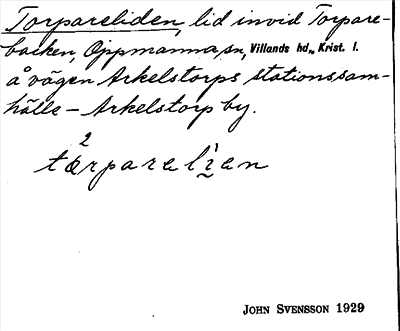 Torpareliden, lid invid Torpare-
backen, Oppmanna sn, Villands hd., Krist. l.
å vägen Arkelstorps stationssam-
hälle – Arkelstorp by.
2
tɷrparelien
JOHN SVENSSON 1929